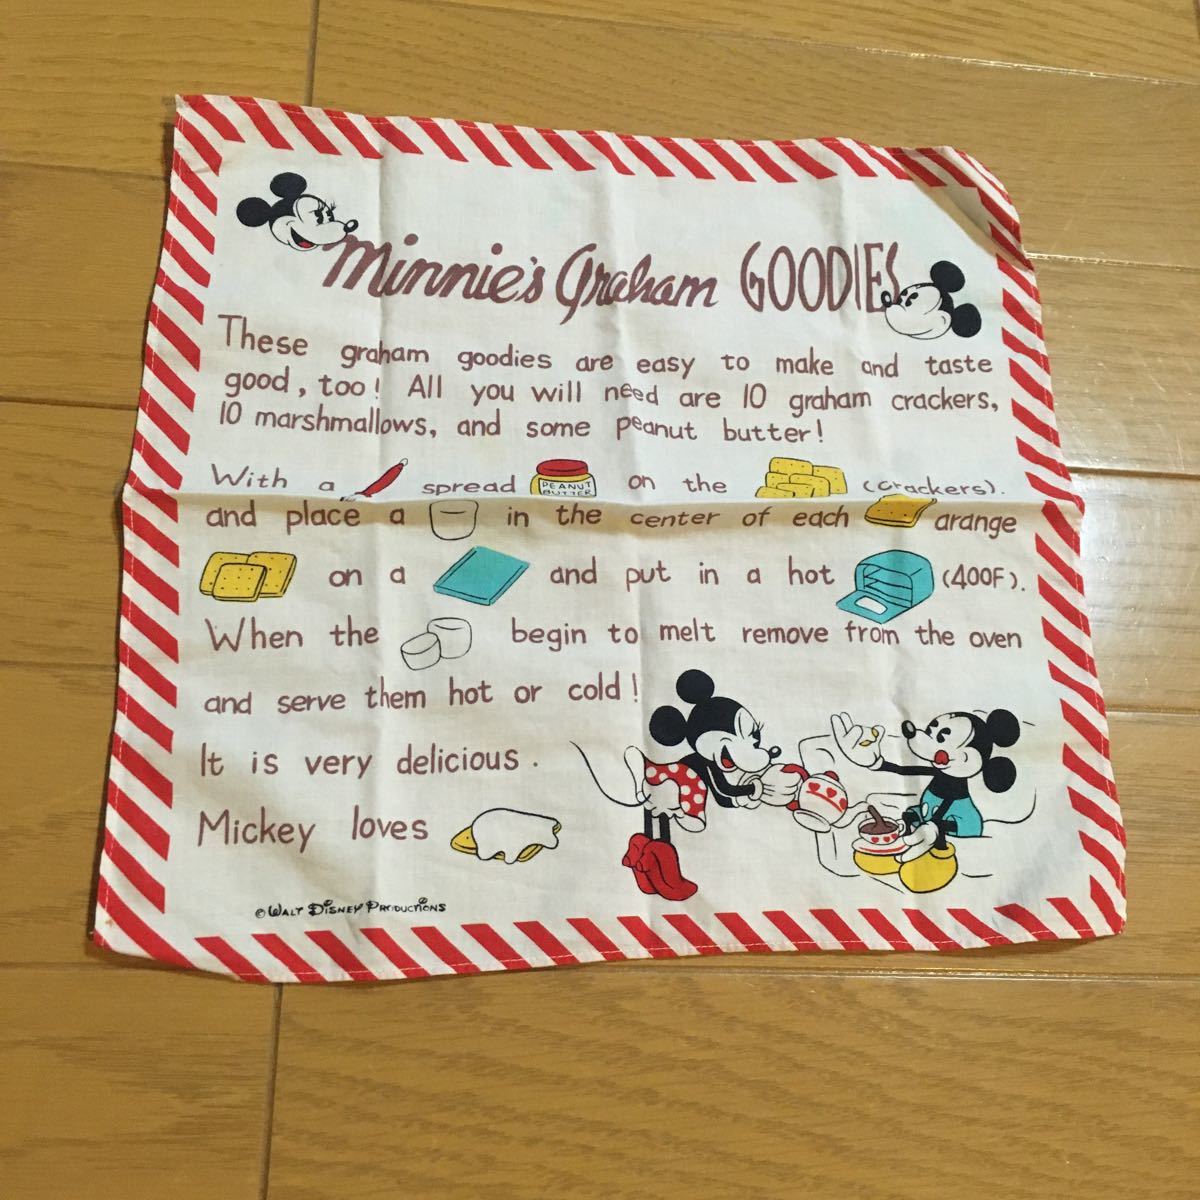 Minnie's Graham GOODIES
These graham goodies are easy to make and taste
good, too! All you will need are 10 graham crackers,
10 marshmallows, and some peanut butter!
With a spread PEANUT BUTTER on the (crackers).
and place a in the center of each arange
on a and put in a hot (400F).
When the begin to melt remove from the oven
and serve them hot or cold!
It is very delicious.
Mickey loves
© WALT DISNEY PRODUCTIONS